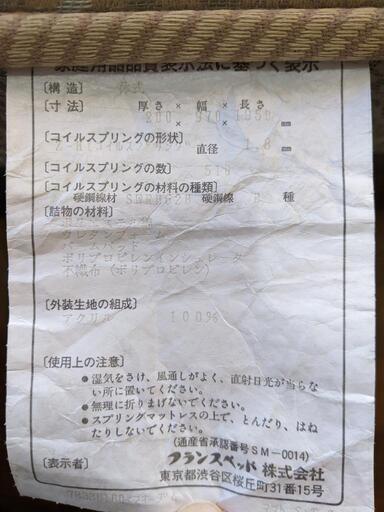 家庭用品品質表示法に基づく表示
〔構 造〕
〔寸 法〕 厚さ × 幅 × 長さ
200 970 1950
× × ㎜
〔コイルスプリングの形状〕
直径 1.8 ㎜
〔コイルスプリングの数〕 510
〔コイルスプリングの材料の種類〕
硬鋼線材 硬鋼線 種
〔詰物の材料〕
ウレタンフォーム
ポリプロピレンインシュレータ
不織布(ポリプロピレン)
〔外装生地の組成〕
アクリル 100%
〔使用上の注意〕
● 湿気をさけ、風通しがよく、直射日光が当らな
い所に置いてください。
● 無理に折りまげないでください。
● スプリングマットレスの上で、とんだり、はね
たりしないでください。
(通産省承認番号SM-0014)
〔表示者〕 フランスベッド 株式会社
東京都渋谷区桜丘町31番15号